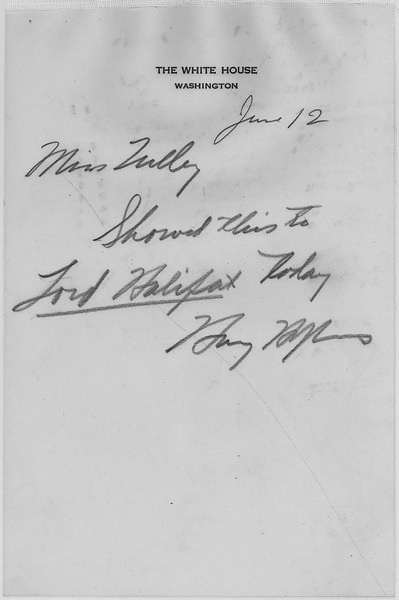 THE WHITE HOUSE
WASHINGTON
June 12
Miss Tulley
Showed this to
Lord Halifax today
Harry Hopkins